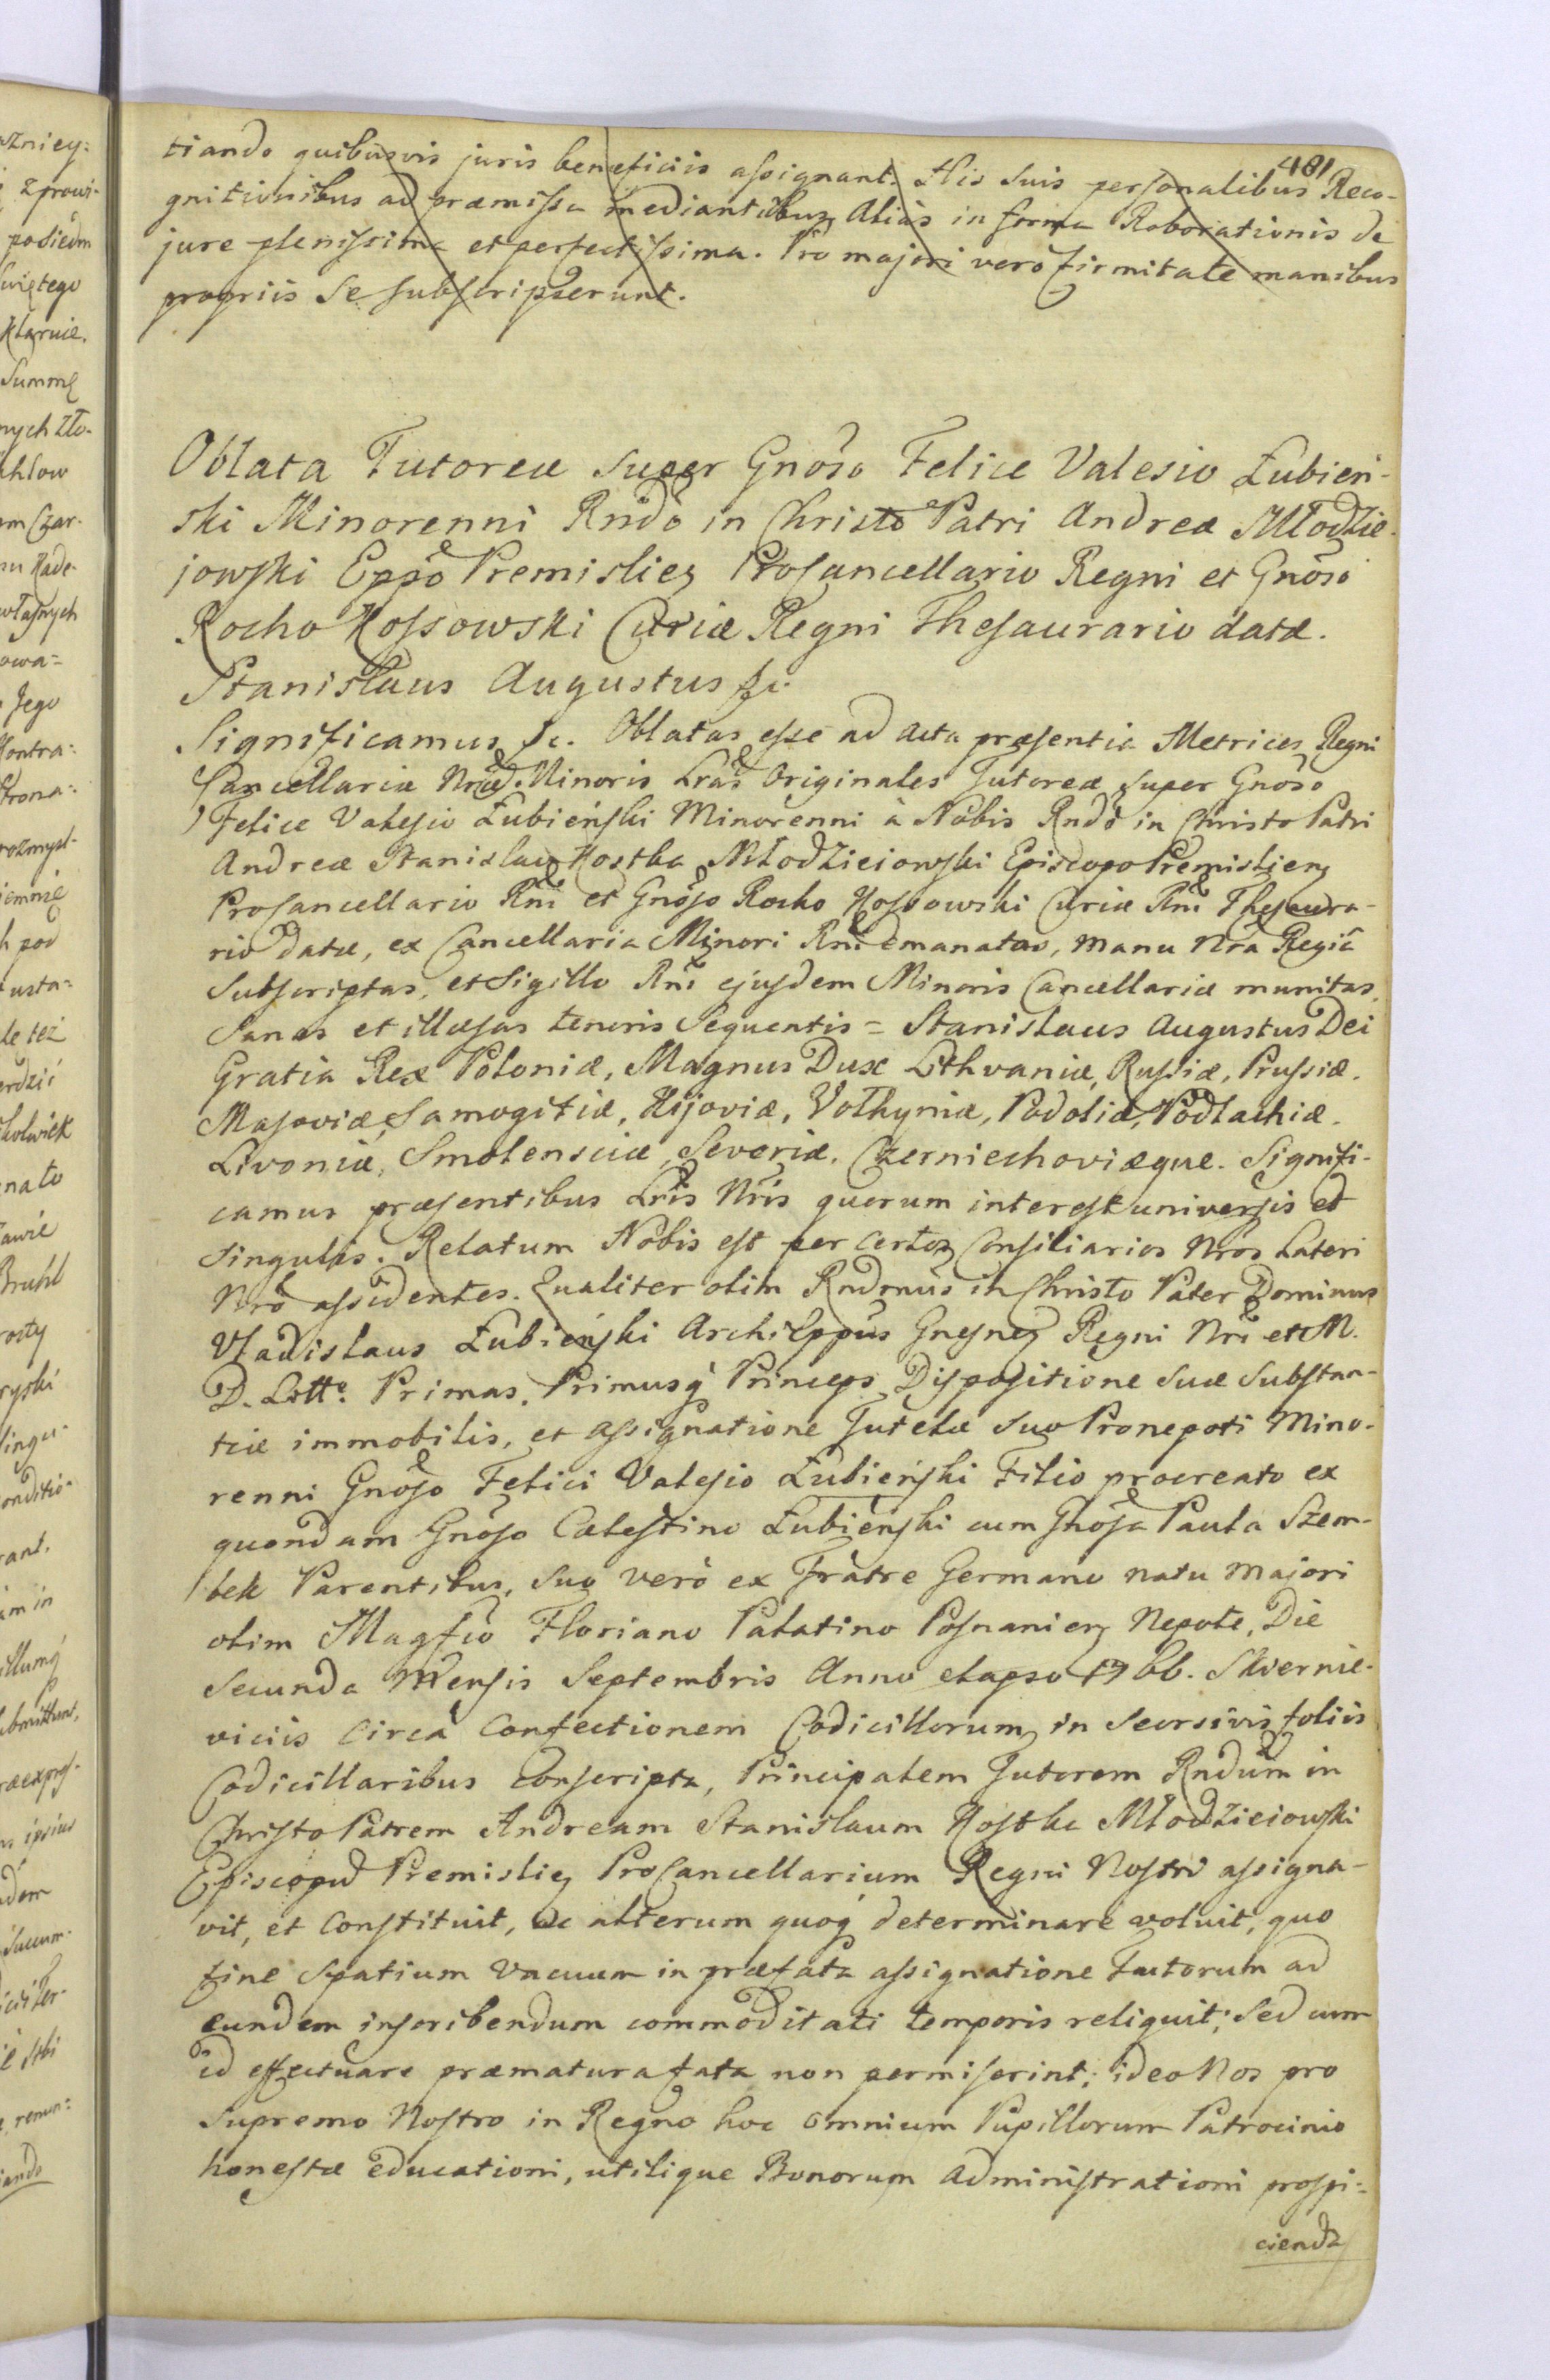 481
tiando quibusvis juris beneficiis assignant. His suis personalibus Reco-
gnitionibus ad præmissa mediantibus, Alias in forma Roborationis de
jure plenissima et perfectissima. Pro majori vero firmitate manibus
propriis se subscripserunt.
Oblata Tutoreæ super Gnoso Felice Valesio Łubień-
ski Minorenni Rndo in Christo Patri Andreæ Młodzie-
jowski Eppo Premislien Procancellario Regni et Gnoso
Rocho Kossowski Curiæ Regni Thesaurario datæ.
Stanislaus Augustus &c.
Significamus &c. Oblatas esse ad Acta præsentia Metrices Regni
Cancellariæ Nræ Minoris Lras Originales Tutoreæ super Gnoso
Felice Valesio Łubieński Minorenni à Nobis Rndo in Christo Patri
Andreæ Stanislao Kostka Młodzieiowski Episcopo Premislien
Procancellario Rni et Gnoso Rocho Kossowski Curiæ Rni Thesaura-
rio datæ, ex Cancellaria Minori Rni emanatas, manu Nra Regiâ
Subscriptas, et Sigillo Rni ejusdem Minoris Cancellariæ munitas,
Sanas et illæsas tenoris sequentis = Stanislaus Augustus Dei
Gratia Rex Poloniæ, Magnus Dux Lithvaniæ, Russiæ, Prussiæ.
Masoviæ, Samogitiæ, Kijoviæ, Volhyniæ, Podoliæ, Podlachiæ.
Livoniæ, Smolensciæ, Severiæ, Czerniechoviæque. Signifi-
camus præsentibus Lris Nris quorum interest universis et
singulis. Relatum Nobis est per certos Consiliarios Nros Lateri
Nro assidentes. Qualiter olim Rndmus in Christo Pater Dominus
Vladislaus Łubieński ArchiEppus Gnesnen Regni Nri et M.
D. Litt. Primas, Primusq Princeps Dispositione suæ substan-
tiæ immobilis, et assignatione Tutelæ suo Pronepoti Mino-
renni Gnoso Felici Valesio Łubieński Filio procreato ex
quondam Gnoso Cælestino Łubieński cum Gnosa Paula Szem-
bek Parentibus, suo verò ex Fratre Germano natu majori
olim Magfco Floriano Palatino Posnanien Nepote, Die
secunda Mensis Septembris Anno elapso 1766. Skiernie-
viciis circa Confectionem Codicillorum in seorsivis foliis
Codicillaribus conscripta, Principalem Tutorem Rndum in
Christo Patrem Andream Stanislaum Kostka Młodzieiowski
Episcopu Premislien ProCancellarium Regni Nostri assigna-
vit, et Constituit, ac alterum quoq determinare voluit, quo
fine spatium vacuum in præfata assignatione Tutorum ad
eundem inscribendum commoditati temporis reliquit; Sed cum
id effectuare præmatura fata non permiserint; ideo Nos pro
Supremo Nostro in Regno hoc omnium Pupillorum Patrocinio
honestæ educationi, utilique Bonorum administrationi prospi-
ciendæ